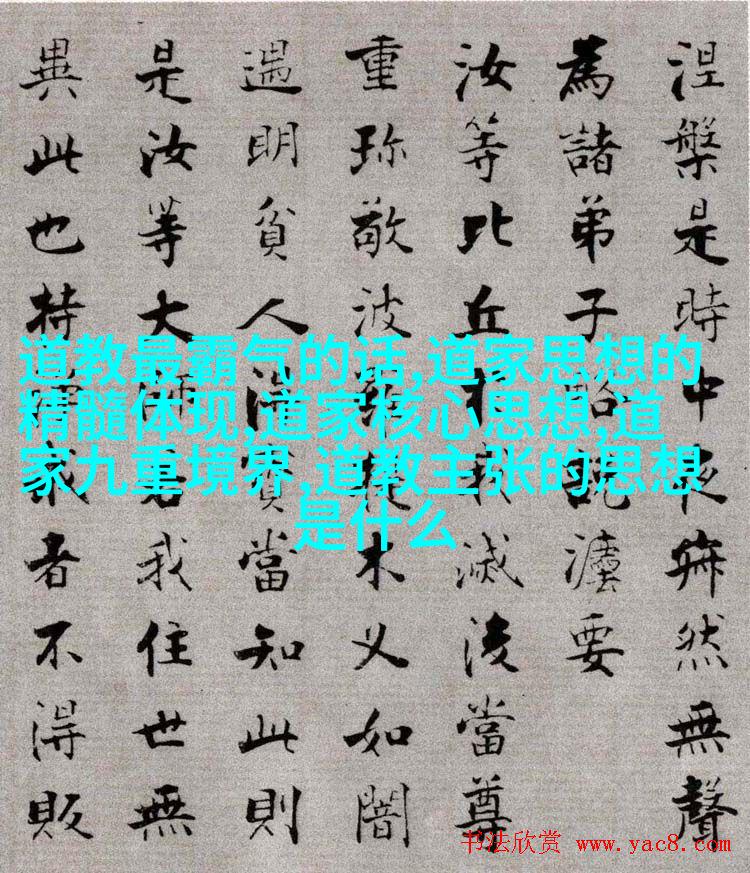 涅槃是時中夜寂然無聲
為諸弟子略説灋要
汝等比丘於我滅後當尊
重珍敬波羅提木叉如闇
遇明貧人得寶當知此則
是汝等大師若我住世無
異此也持淨戒者不得販
道教最霸气的话,道家思想的
精髓体现,道家核心思想,道
家九重境界,道教主张的思想
是什么
书法欣赏 www.yac8.com